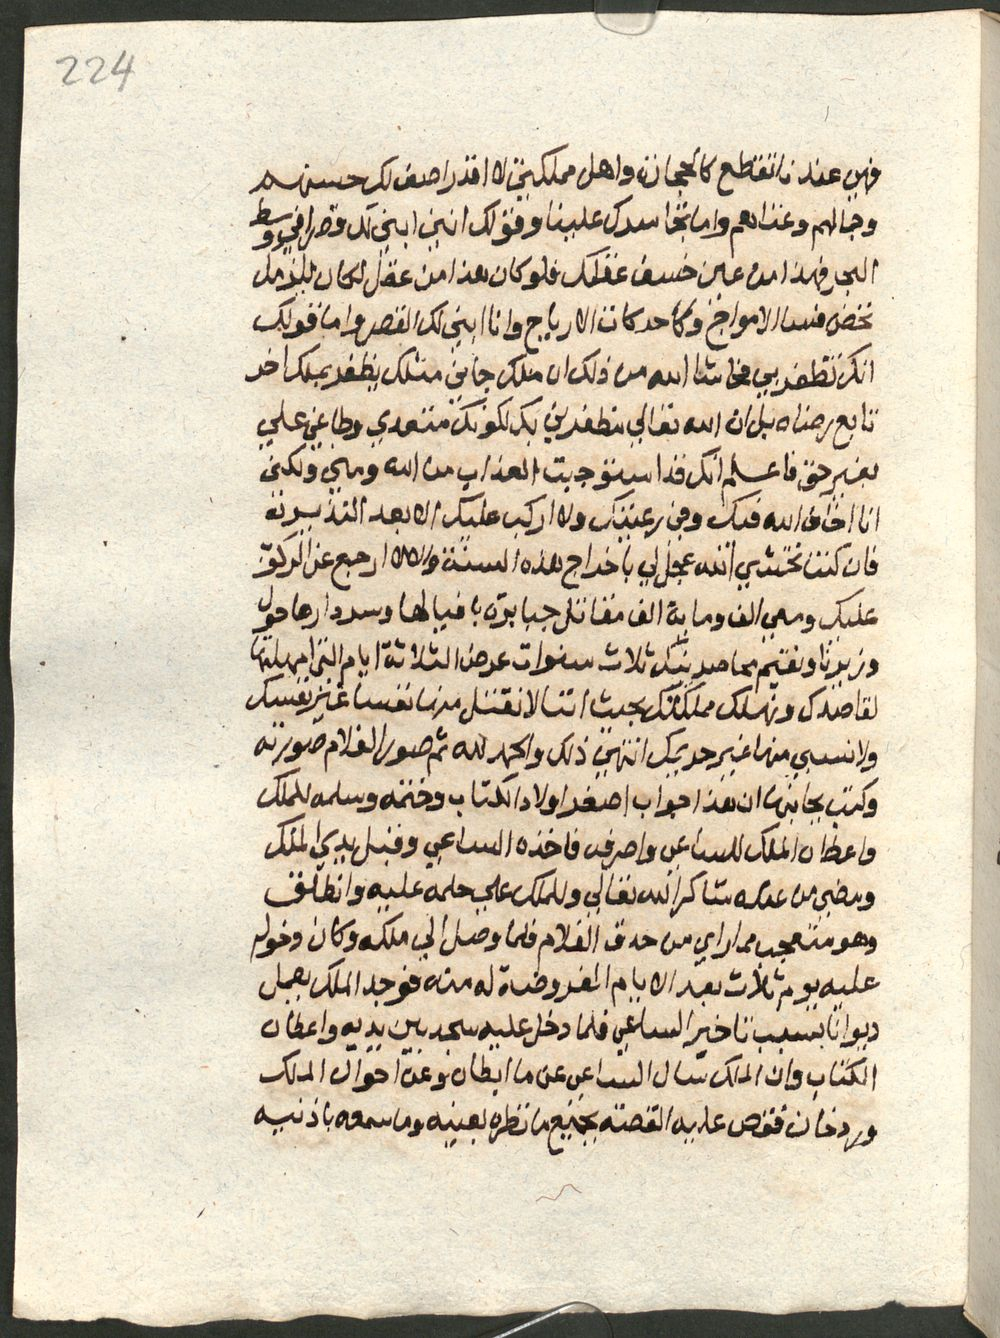 224
فهن عندنا تقطع كالحجازن واهل مملكتي لا اقدر اصف لك حسنهم
وجمالهم وعندهم واما تجاسدك علينا وقولك انني ابني لك قصرا في وسط
البحر فهذا من عين خسف عقلك فلو كان هذا من عقل لكان
الامواج وكاحد كانت الارياح وانا ابني لك القصر واما قولك
انك تظفر بي فحاشا الله من ذلك ان ملك جاني مثلك يظفر بملك اخر
تابع رضاه بل ان الله تعالي يظفرني بك لكونك متعدي وطاغي علي
بغير حق فاعلم انك قد استوجبت العذاب من الله ومني ولكني
انا اخاف الله فيك وفي رعيتك ولا اركب عليك الا بعد
فان كنت تختشي الله عجل لي باخراج هذه السنة والا لا ارجع عن الركوب
عليك ومعي الف وماية الف مقاتل جبابره بافيالها
ونقيم محاصرينك ثلاث سنوات عوض الثلاثة ايام التي امهلتها
لقاصدك ونهلك مملكتك بحيث اننا لا نقتل منها نفسا غير نفسك
ولا نسبي منها غير حريمك انتهي ذلك والحمد لله ثم صور الغلام صورته
وكتب بجانبها ان هذا جواب اصغر اولاد الكتاب وختمه وسلمه للملك
واعطاه الملك للساعي واصرفه فاخذه الساعي وقبل يدي الملك
ومضي من عنده شاكرا لله تعالي وللملك علي حلمه عليه وانطلق
وهو متعجب مما راي من حدق الغلام فلما وصل الي ملكه وكان دخوله
عليه يوم ثلاث بعد الايام المفروضة له منه فوجد الملك بعمل
ديوانا بسبب تاخير الساعي فلما دخل عليه سجد بين يديه واعطاه
الكتاب وان الملك سال الساعي عن ما ابطاه وعن احوال الملك
ورد خان فقص عليه القصة بجميع ما نظره بعينيه وما سمعه باذنيه